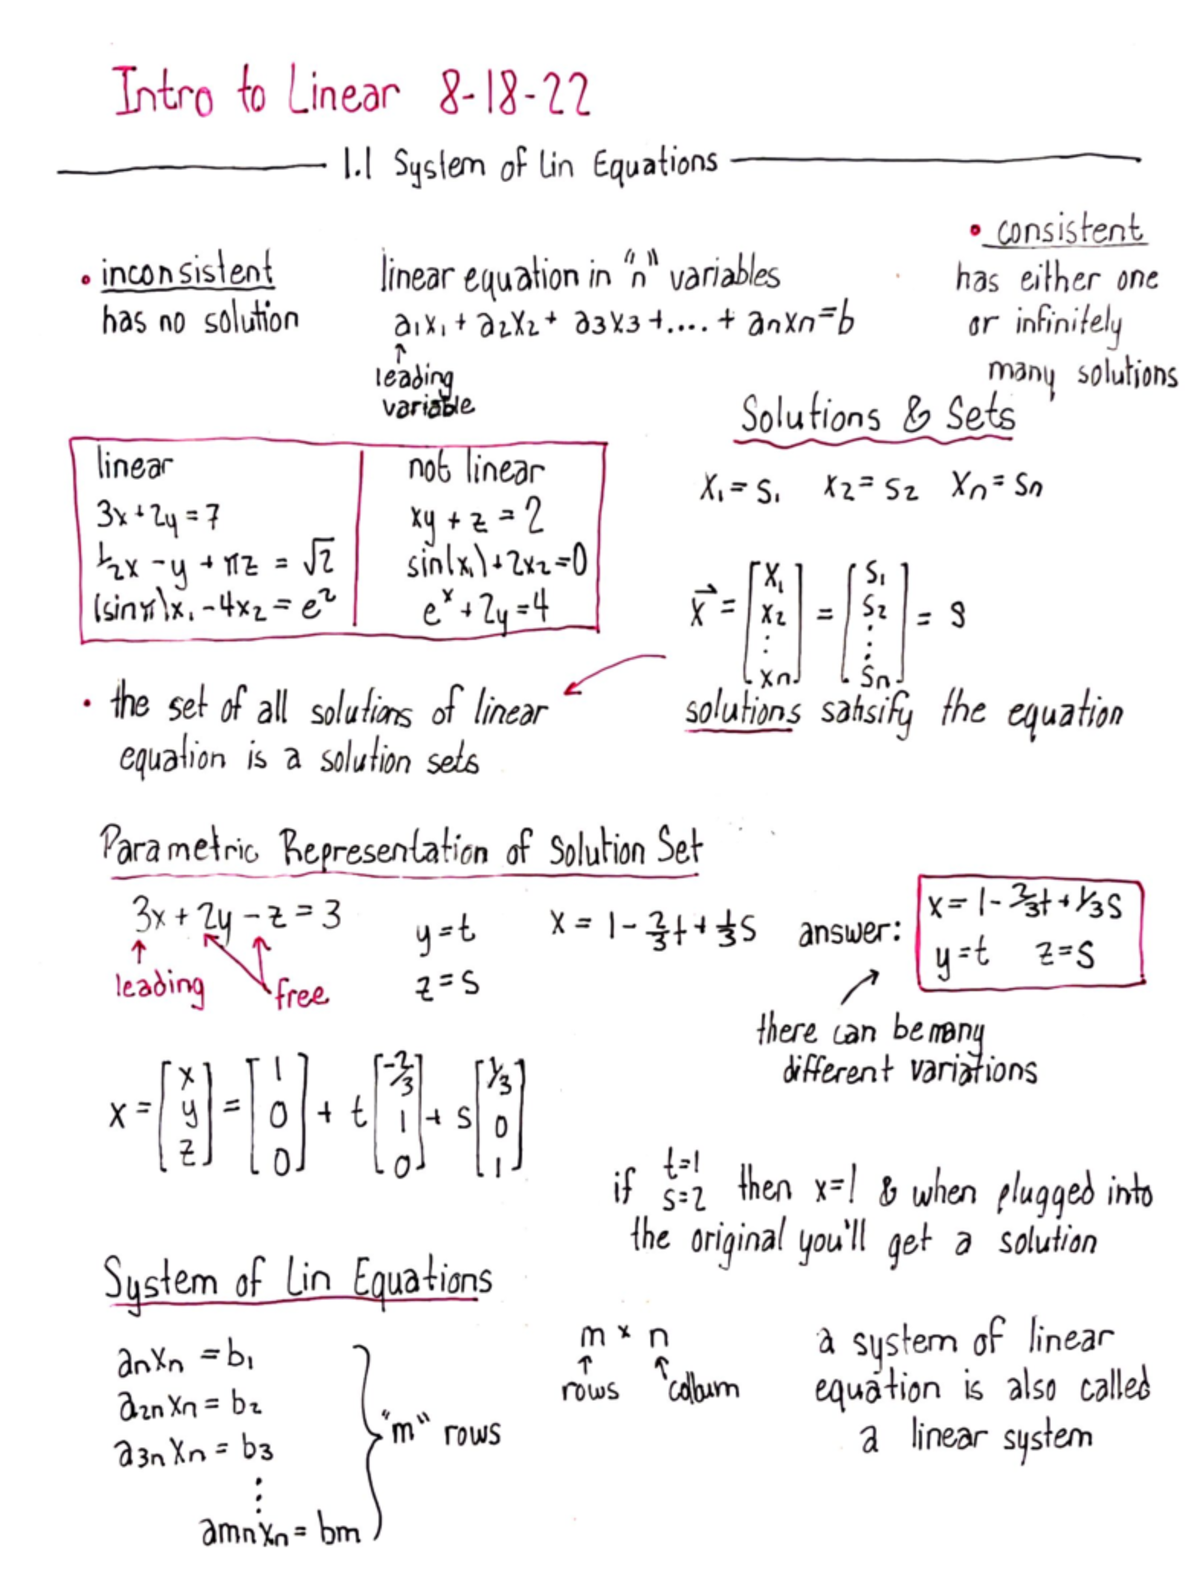 Intro to Linear 8-18-22
1.1 System of Lin Equations
• inconsistent
has no solution
linear equation in "n" variables
a1x1 + a2x2 + a3x3 +.... + anxn=b
↑
leading
variable
• consistent
has either one
or infinitely
many solutions
linear
3x+2y=7
1/2x - y + πz = √2
(sinπ)x1 - 4x2 = e²
not linear
xy + z = 2
sin(x1)+2x2=0
e^x + 2y=4
Solutions & Sets
X1 = S1 X2 = S2 Xn = Sn
x⃗ = [X1 X2 ⋮ Xn] = [S1 S2 ⋮ Sn] = S
solutions satisfy the equation
• the set of all solutions of linear
equation is a solution sets
Parametric Representation of Solution Set
3x + 2y - z = 3
leading free
y=t
z=s
X = 1 - 2/3t + 1/3S
answer:
x= 1- 2/3t + 1/3S
y=t z=S
there can be many
different variations
X = [x y z] = [1 0 0] + t [-2/3 1 0] + s [1/3 0 1]
if t=1 s=2 then x=1 & when plugged into
the original you'll get a solution
System of Lin Equations
anxn = b1
a2nxn = b2
a3nxn = b3
⋮
amnxn = bm
"m" rows
m × n
↑ ↑
rows colbum
a system of linear
equation is also called
a linear system